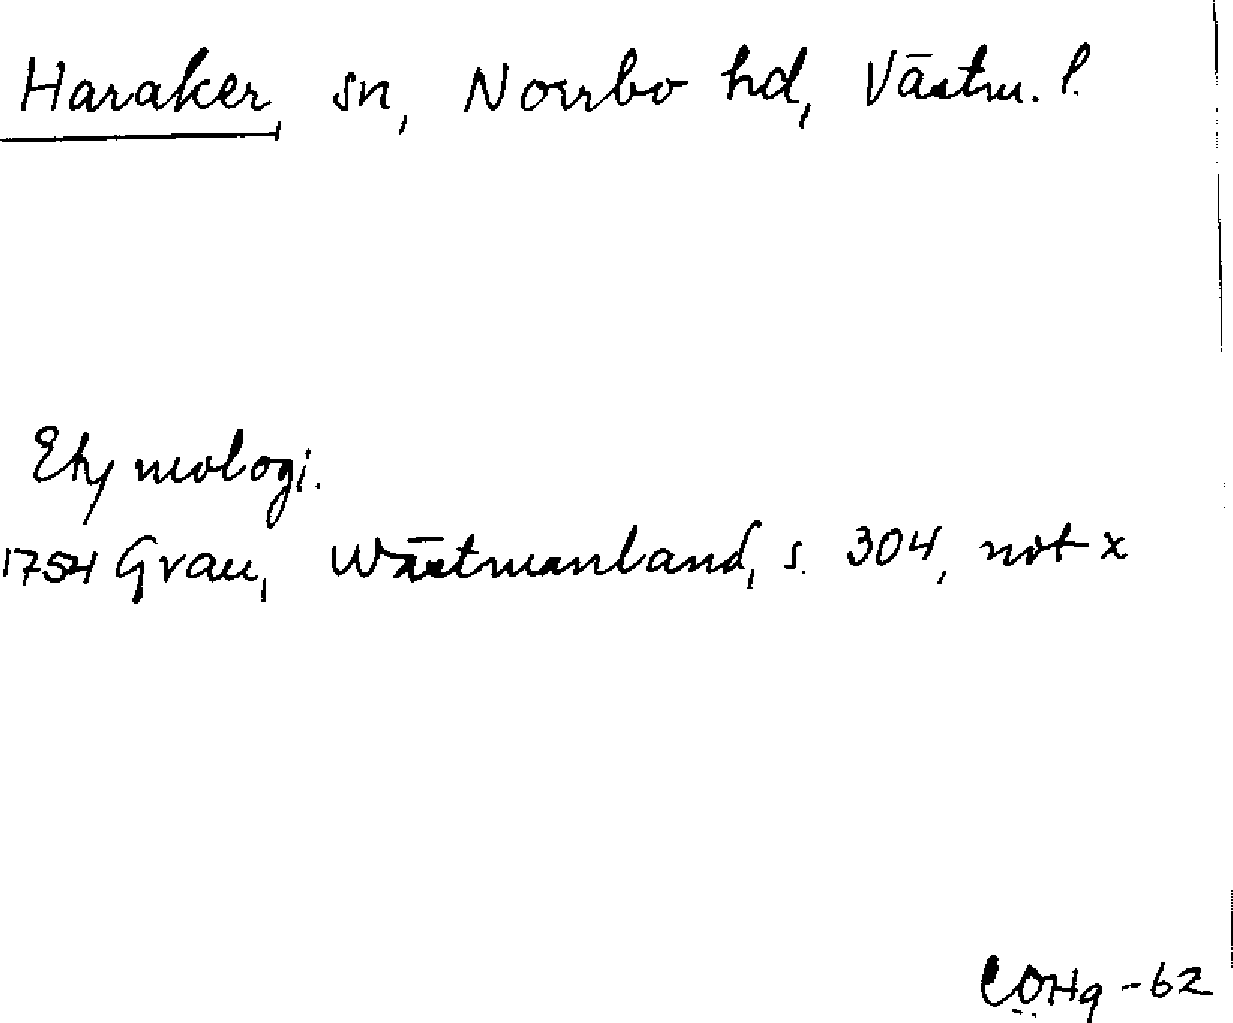 Haraker, sn, Norrbo hd, Västm. l.
Etymologi.
1754 Grau, Wästmanland, s. 304, not x
COHg -62